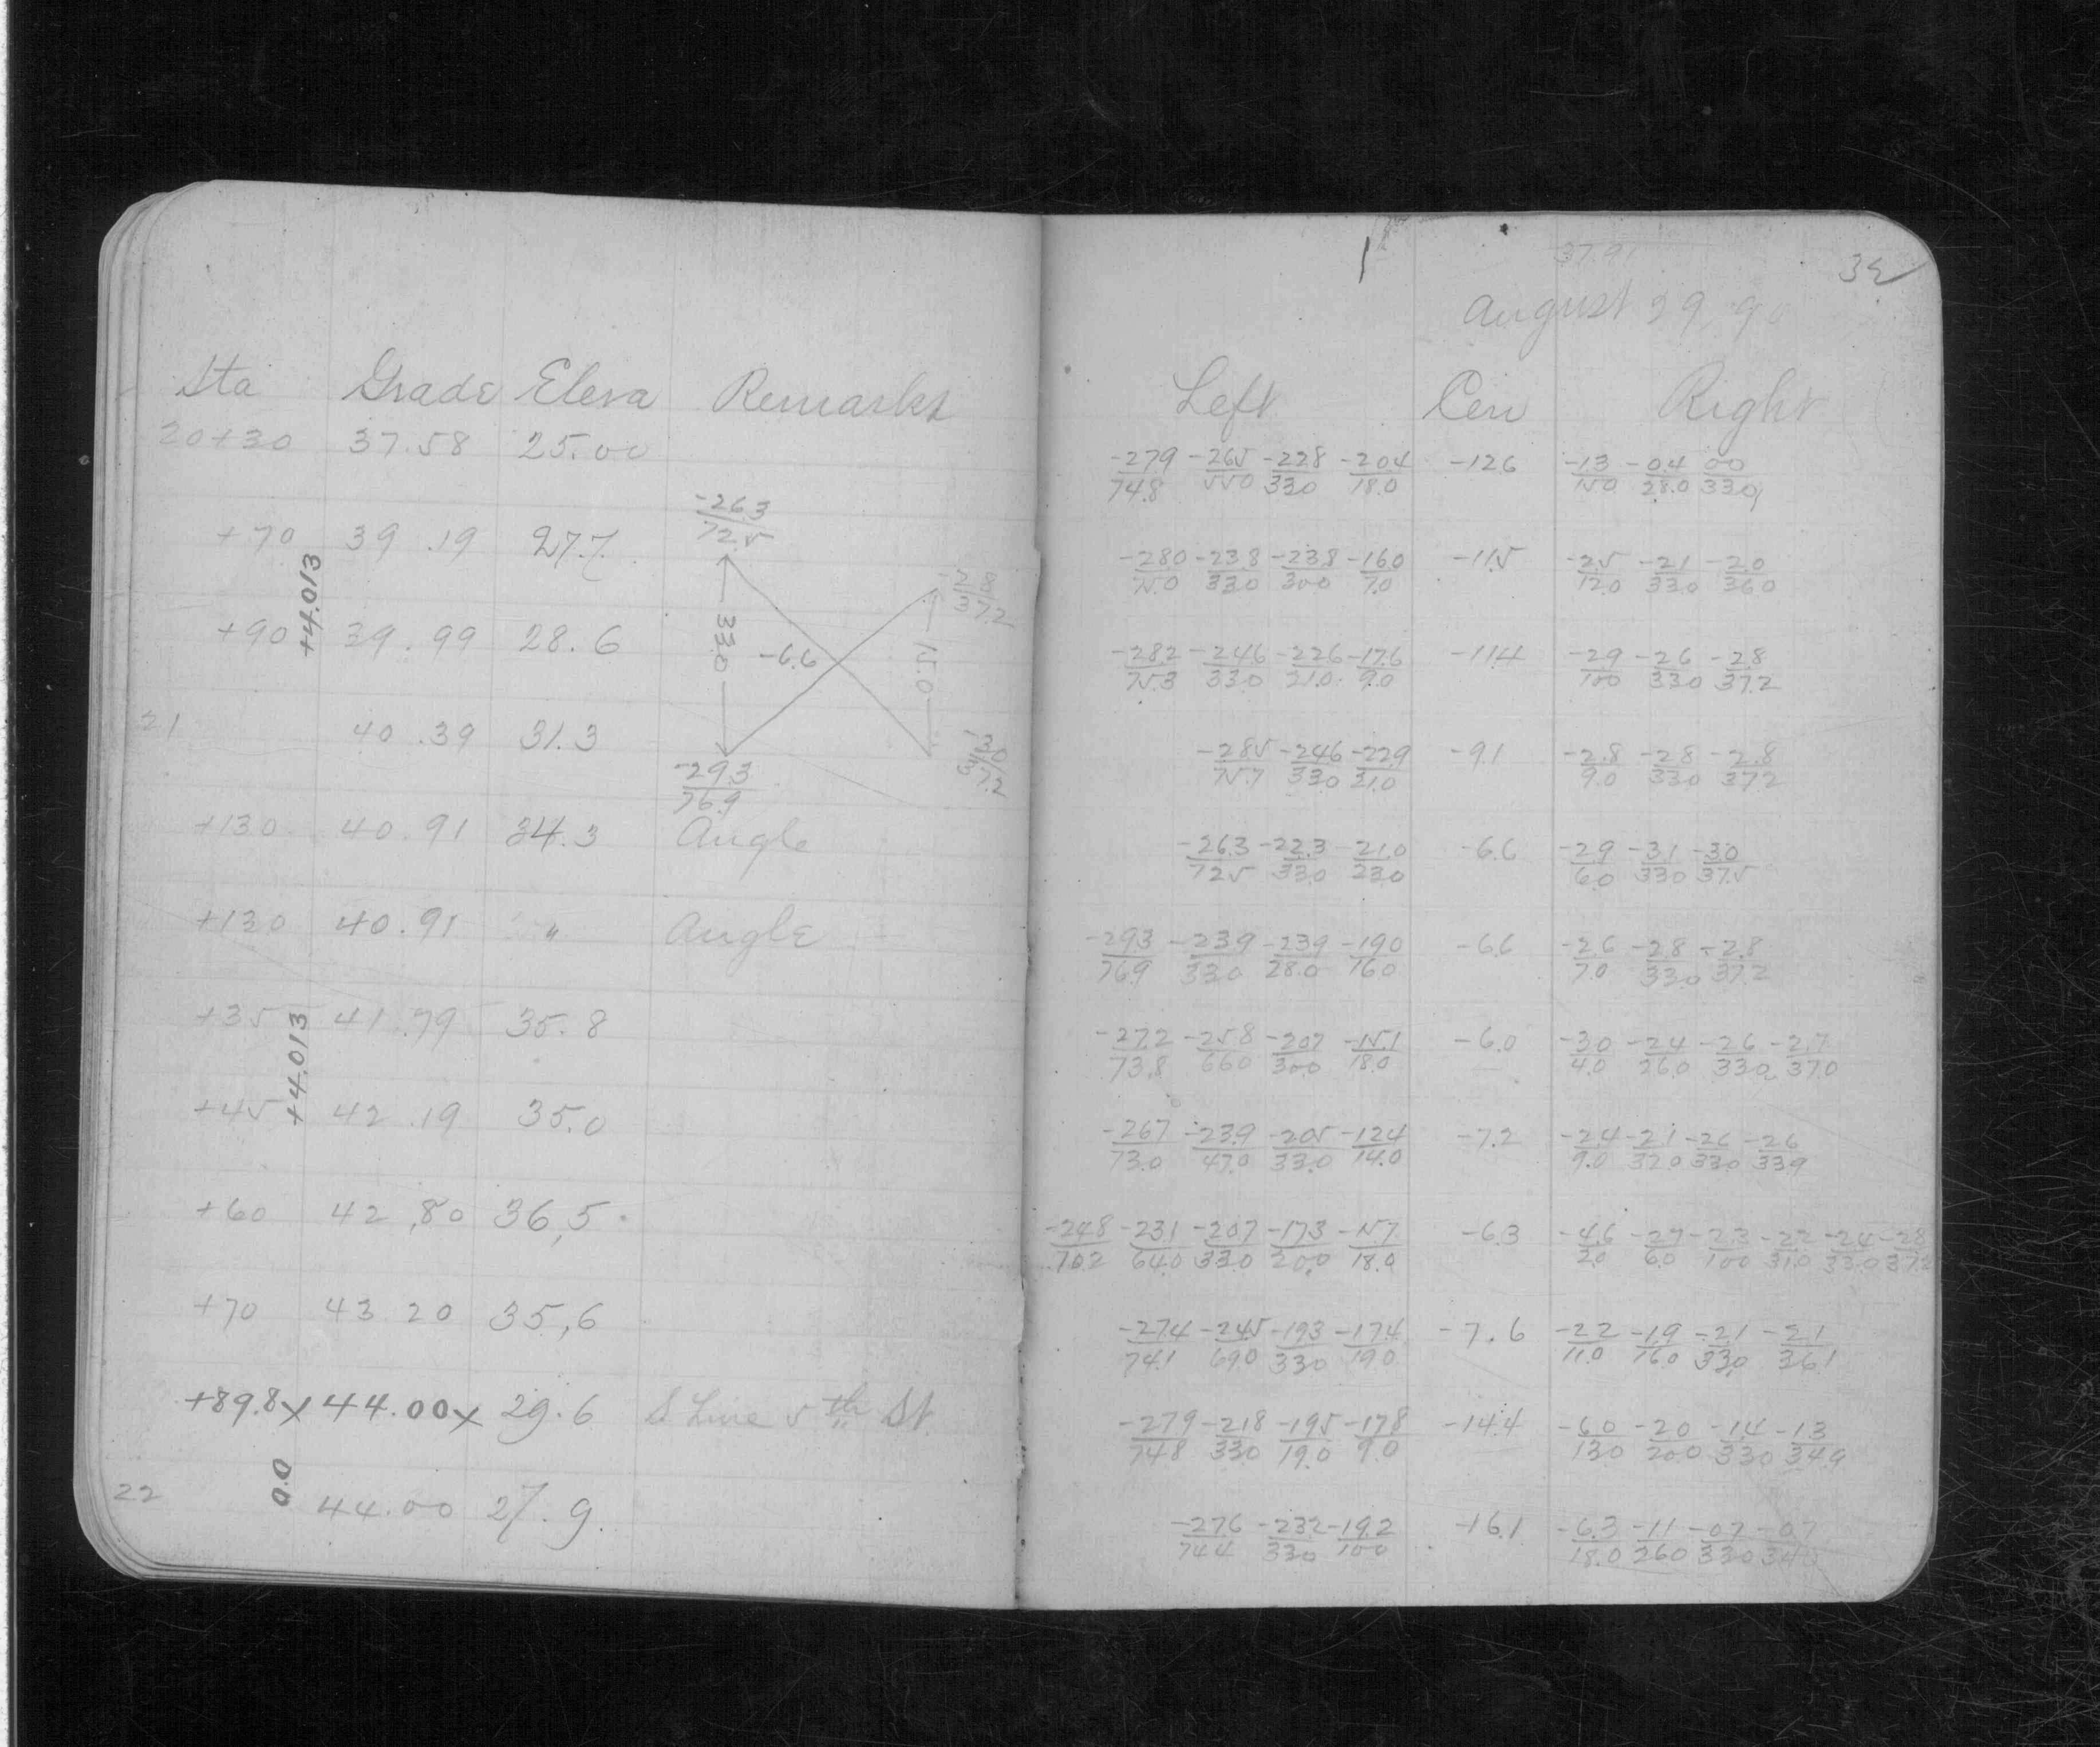 37.91
32
August 29, 90
Sta Grade Eleva Remarks Left Cen Right
20+30 37.58 25.00 -27.9/74.8 -26.5/55.0 -22.8/33.0 -20.4/18.0 -12.6 -1.3/15.0 -0.4/28.0 00/33.0
-26.3/72.5
+70 39.19 27.7 -28.0/75.0 -23.8/33.0 -23.8/30.0 -16.0/7.0 -11.5 -2.5/12.0 -2.1/33.0 -2.0/36.0
+4.013
+90 39.99 28.6 33.0 -6.6 15.0 -28.2/75.3 -24.6/33.0 -22.6/21.0 -17.6/9.0 -11.4 -2.9/10.0 -2.6/33.0 -2.8/37.2
21 40.39 31.3 -28.5/75.7 -24.6/33.0 -22.9/21.0 -9.1 -2.8/9.0 -2.8/33.0 -2.8/37.2
-29.3/76.9
+130 40.91 34.3 Angle -26.3/72.5 -22.3/33.0 -21.0/23.0 -6.6 -2.9/6.0 -3.1/33.0 -3.0/37.5
+130 40.91 " Angle -29.3/76.9 -23.9/33.0 -23.9/28.0 -19.0/16.0 -6.6 -2.6/7.0 -2.8/33.0 -2.8/37.2
+35 41.79 35.8 -27.2/73.8 -25.8/66.0 -20.7/30.0 -15.1/18.0 -6.0 -3.0/4.0 -2.4/26.0 -2.6/33.0 -2.7/37.0
+4.013
+45 42.19 35.0 -26.7/73.0 -23.9/47.0 -20.5/33.0 -12.4/14.0 -7.2 -2.4/9.0 -2.1/32.0 -2.6/33.0 -2.6/33.9
+60 42.80 36.5 -24.8/70.2 -23.1/64.0 -20.7/33.0 -17.3/20.0 -15.7/18.0 -6.3 -4.6/2.0 -2.7/6.0 -2.3/10.0 -2.2/31.0 -2.4/33.0 -2.8/37.2
+70 43 20 35.6 -27.4/74.1 -24.5/69.0 -19.3/33.0 -17.4/19.0 -7.6 -2.2/11.0 -1.9/16.0 -2.1/33.0 -2.1/36.1
+89.8x 44.00x 29.6 S Line 5th St -27.9/74.8 -21.8/33.0 -19.5/19.0 -17.8/9.0 -14.4 -6.0/13.0 -2.0/20.0 -1.4/33.0 -1.3/34.9
0.0
22 44.00 27.9 -27.6/74.4 -23.2/33.0 -19.2/10.0 -16.1 -6.3/18.0 -1.1/26.0 -0.7/33.0 -0.7/34.0